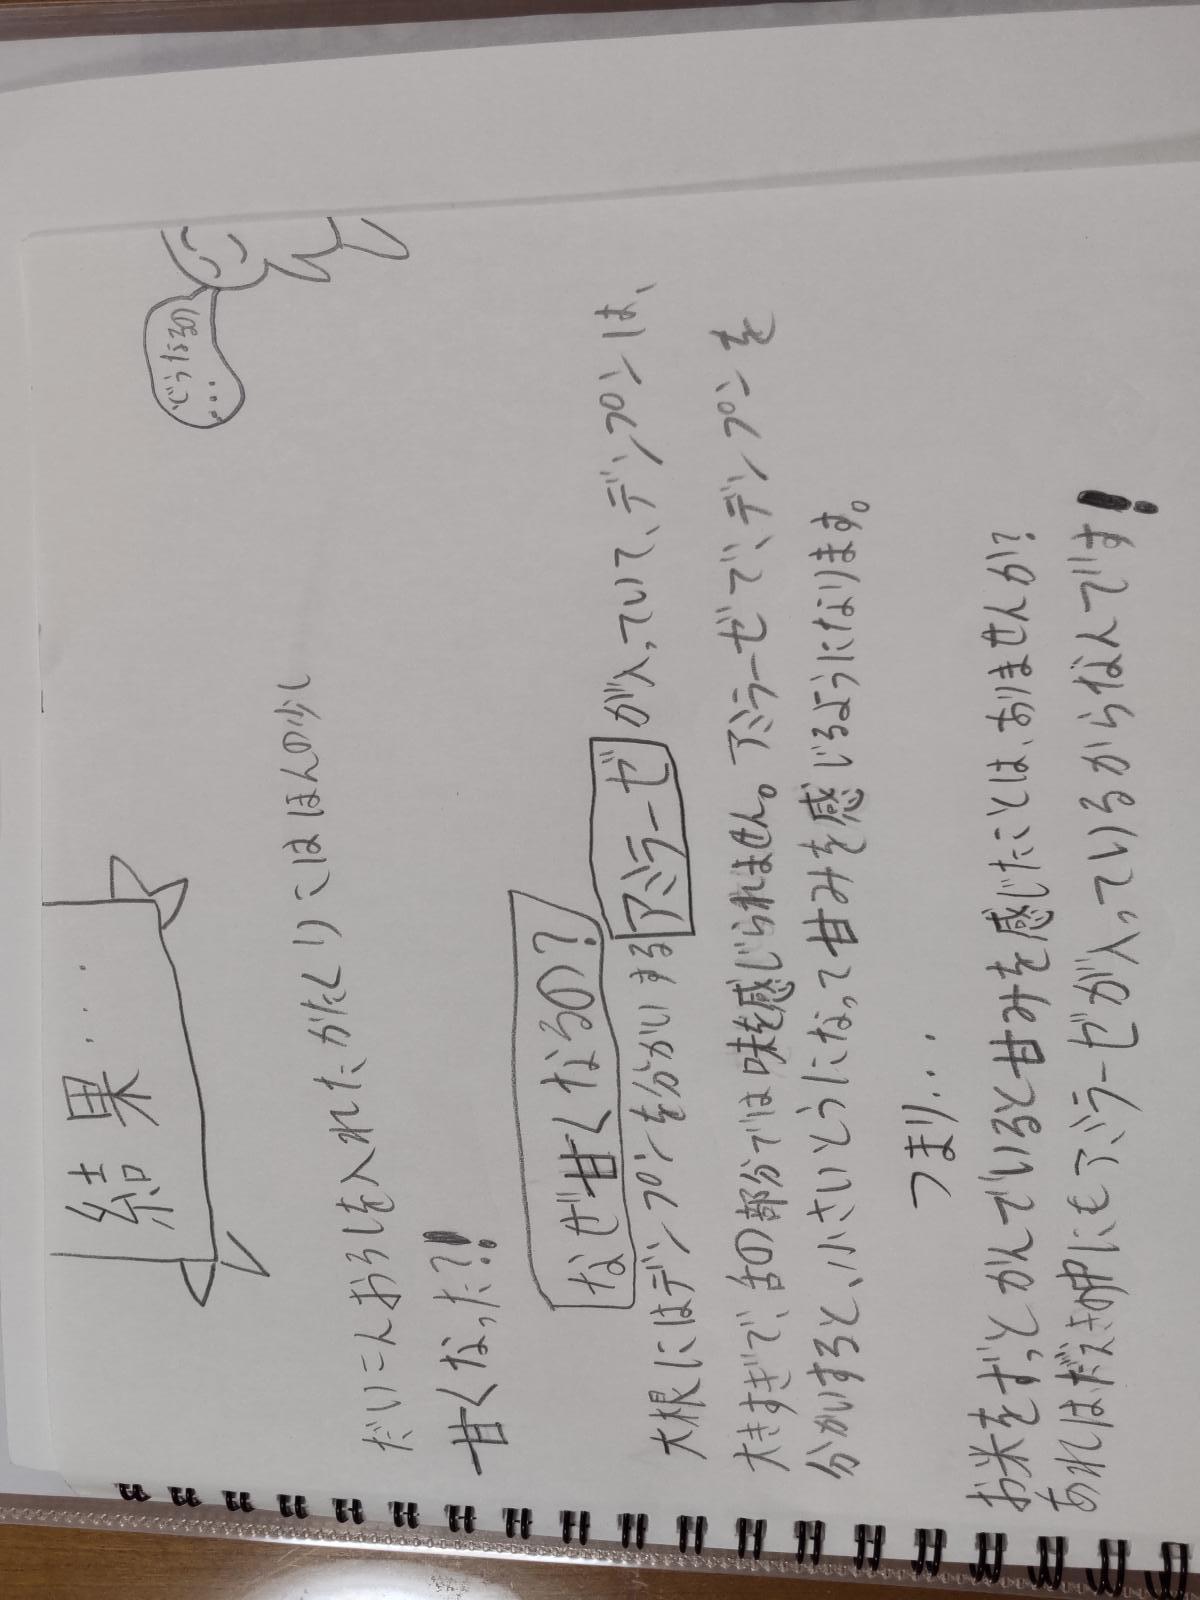 結果...
だいこんおろしを入れたかたくりこはほんの少し
甘くなった?!
なぜ甘くなるの?
大根にはデンプンを分かいするアミラーゼが入っていて、デンプンは、
大きすぎで、舌の部分では味を感じられません。アミラーゼで、デンプンを
分かいすると、小さいとうになって甘みを感じるようになります。
つまり...
お米をずっとかんでいると甘みを感じたことは、ありませんか?
あれは、だえきの中にもアミラーゼが入っているからなんです!